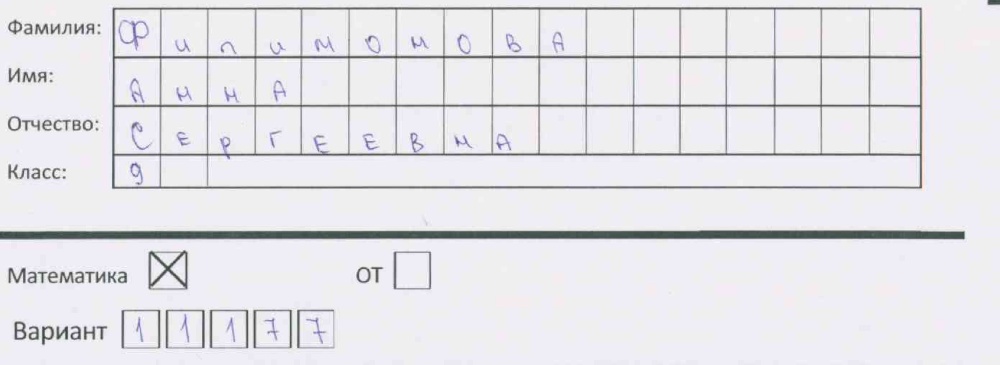 Фамилия: Филимонова
Имя: Анна
Отчество: Сергеевна
Класс: 9
Математика ☒ ОТ ☐
Вариант 11177